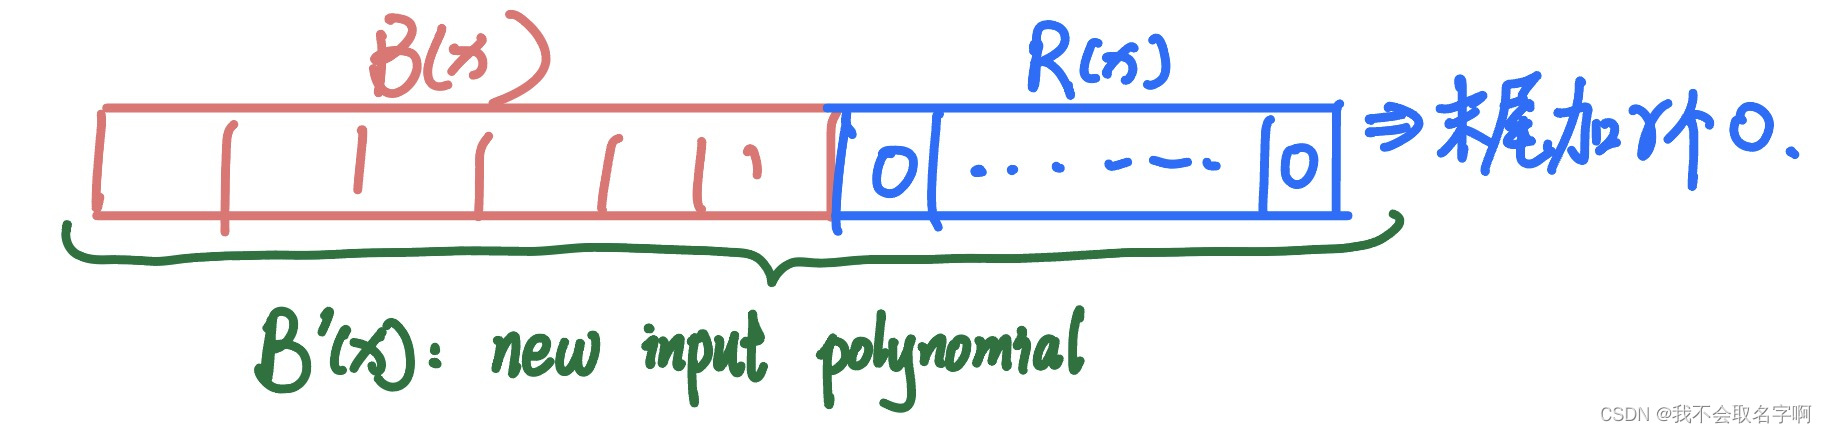 B(x) R(x)
0 . . . - — - . 0 ⇒ 末尾加r个0.
B'(x): new input polynomial
CSDN @我不会取名字啊